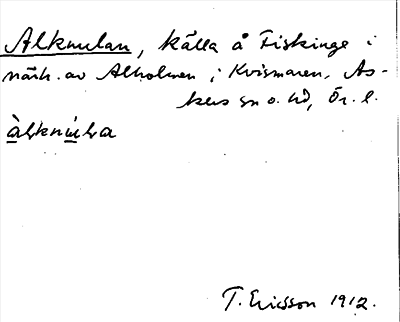 Alknulan, källa å Fiskinge i
närh. av Alholmen i Kvismaren, As-
kers sn o. hd, Ör. l.
àlknúla
T. Ericsson 1912.